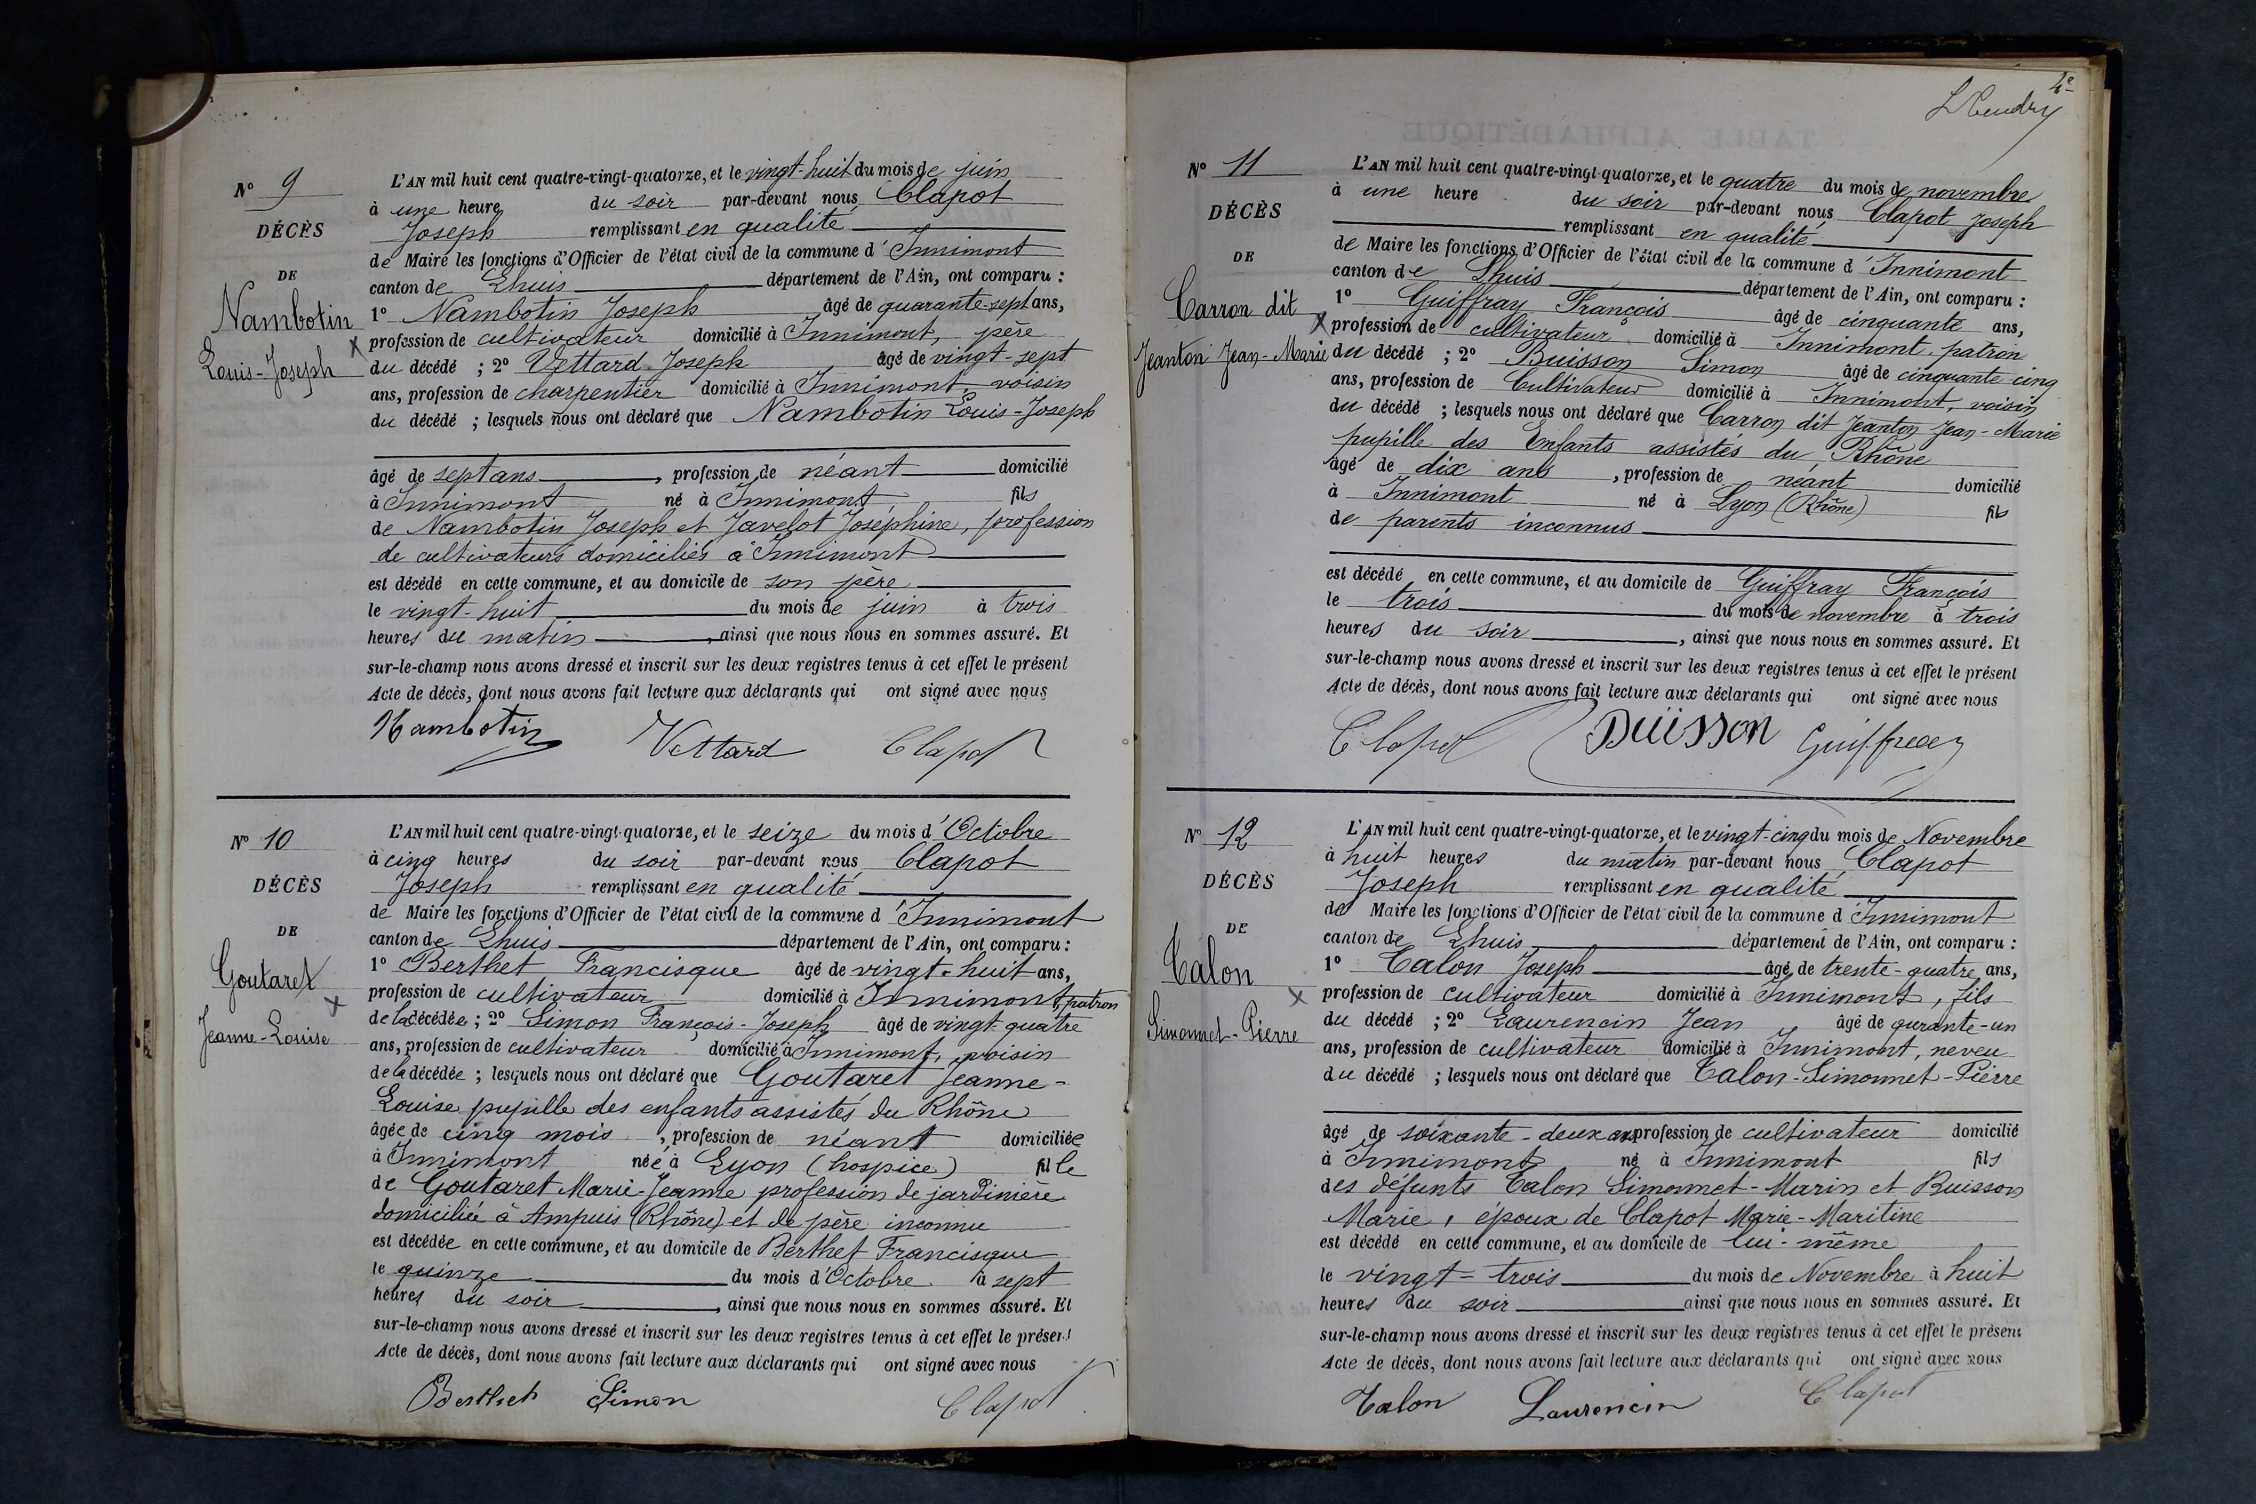 Nº 9
DÉCÈS
DE
Nambotin
Louis-Joseph
L'AN mil huit cent quatre-vingt-quatorze, et le vingt-huit du mois de juin
à une heure du soir par-devant nous Clapot
Joseph remplissant en qualité
de Maire les fonctions d'Officier de l'état civil de la commune d'Innimont
canton de Lhuis département de l'Ain, ont comparu :
1º Nambotin Joseph âgé de quarante-sept ans,
profession de cultivateur domicilié à Innimont, père
du décédé ; 2º Vettard Joseph âgé de vingt-sept
ans, profession de charpentier domicilié à Innimont, voisin
du décédé ; lesquels nous ont déclaré que Nambotin Louis-Joseph
âgé de sept ans, profession de néant domicilié
à Innimont né à Innimont, fils
de Nambotin Joseph et Javelot Joséphine, profession
de cultivateurs domiciliés à Innimont
est décédé en cette commune, et au domicile de son père
le vingt-huit du mois de juin à trois
heures du matin, ainsi que nous nous en sommes assuré. Et
sur-le-champ nous avons dressé et inscrit sur les deux registres tenus à cet effet le présent
Acte de décès, dont nous avons fait lecture aux déclarants qui ont signé avec nous
Nambotin Vettard Clapot
Nº 10
DÉCÈS
DE
Goutaret
Jeanne-Louise
L'AN mil huit cent quatre-vingt-quatorze, et le seize du mois d'Octobre
à cinq heures du soir par-devant nous Clapot
Joseph remplissant en qualité
de Maire les fonctions d'Officier de l'état civil de la commune d'Innimont
canton de Lhuis département de l'Ain, ont comparu :
1º Berthet Francisque âgé de vingt-huit ans,
profession de cultivateur domicilié à Innimont, patron
de la décédée ; 2º Simon François-Joseph âgé de vingt-quatre
ans, profession de cultivateur domicilié à Innimont, voisin
de la décédée ; lesquels nous ont déclaré que Goutaret Jeanne-
Louise pupille des enfants assistés du Rhône
âgée de cinq mois, profession de néant domiciliée
à Innimont née à Lyon (hospice) fille
de Goutaret Marie-Jeanne profession de jardinière
domiciliée à Ampuis (Rhône) et de père inconnu
est décédée en cette commune, et au domicile de Berthet Francisque
le quinze du mois d'Octobre à sept
heures du soir, ainsi que nous nous en sommes assuré. Et
sur-le-champ nous avons dressé et inscrit sur les deux registres tenus à cet effet le présent
Acte de décès, dont nous avons fait lecture aux déclarants qui ont signé avec nous
Berthet Simon Clapot
4e
Nº 11
DÉCÈS
DE
Carron dit
Jeanton Jean-Marie
L'AN mil huit cent quatre-vingt-quatorze, et le quatre du mois de novembre
à une heure du soir par-devant nous Clapot Joseph
remplissant en qualité
de Maire les fonctions d'Officier de l'état civil de la commune d'Innimont
canton de Lhuis département de l'Ain, ont comparu :
1º Guiffray François âgé de cinquante ans,
profession de cultivateur domicilié à Innimont, patron
du décédé ; 2º Buisson Simon âgé de cinquante cinq
ans, profession de Cultivateur domicilié à Innimont, voisin
du décédé ; lesquels nous ont déclaré que Carron dit Jeanton Jean-Marie
pupille des Enfants assistés du Rhône
âgé de dix ans, profession de néant domicilié
à Innimont né à Lyon (Rhône) fils
de parents inconnus
est décédé en cette commune, et au domicile de Guiffray François
le trois du mois de novembre à trois
heures du soir, ainsi que nous nous en sommes assuré. Et
sur-le-champ nous avons dressé et inscrit sur les deux registres tenus à cet effet le présent
Acte de décès, dont nous avons fait lecture aux déclarants qui ont signé avec nous
Clapot Buisson Guiffray
Nº 12
DÉCÈS
DE
Talon
Simonnet-Pierre
L'AN mil huit cent quatre-vingt-quatorze, et le vingt-cinq du mois de Novembre
à huit heures du matin par-devant nous Clapot
Joseph remplissant en qualité
de Maire les fonctions d'Officier de l'état civil de la commune d'Innimont
canton de Lhuis département de l'Ain, ont comparu :
1º Talon Joseph âgé de trente-quatre ans,
profession de cultivateur domicilié à Innimont, fils
du décédé ; 2º Laurencin Jean âgé de qurante-un
ans, profession de cultivateur domicilié à Innimont, neveu
du décédé ; lesquels nous ont déclaré que Talon-Simonnet-Pierre
âgé de soixante-deux ans profession de cultivateur domicilié
à Innimont né à Innimont fils
des défunts Talon Simonnet-Marin et Buisson
Marie, époux de Clapot Marie-Maritine
est décédé en cette commune, et au domicile de lui-même
le vingt-trois du mois de Novembre à huit
heures du soir ainsi que nous nous en sommes assuré. Et
sur-le-champ nous avons dressé et inscrit sur les deux registres tenus à cet effet le présent
Acte de décès, dont nous avons fait lecture aux déclarants qui ont signé avec nous
Talon Laurencin Clapot